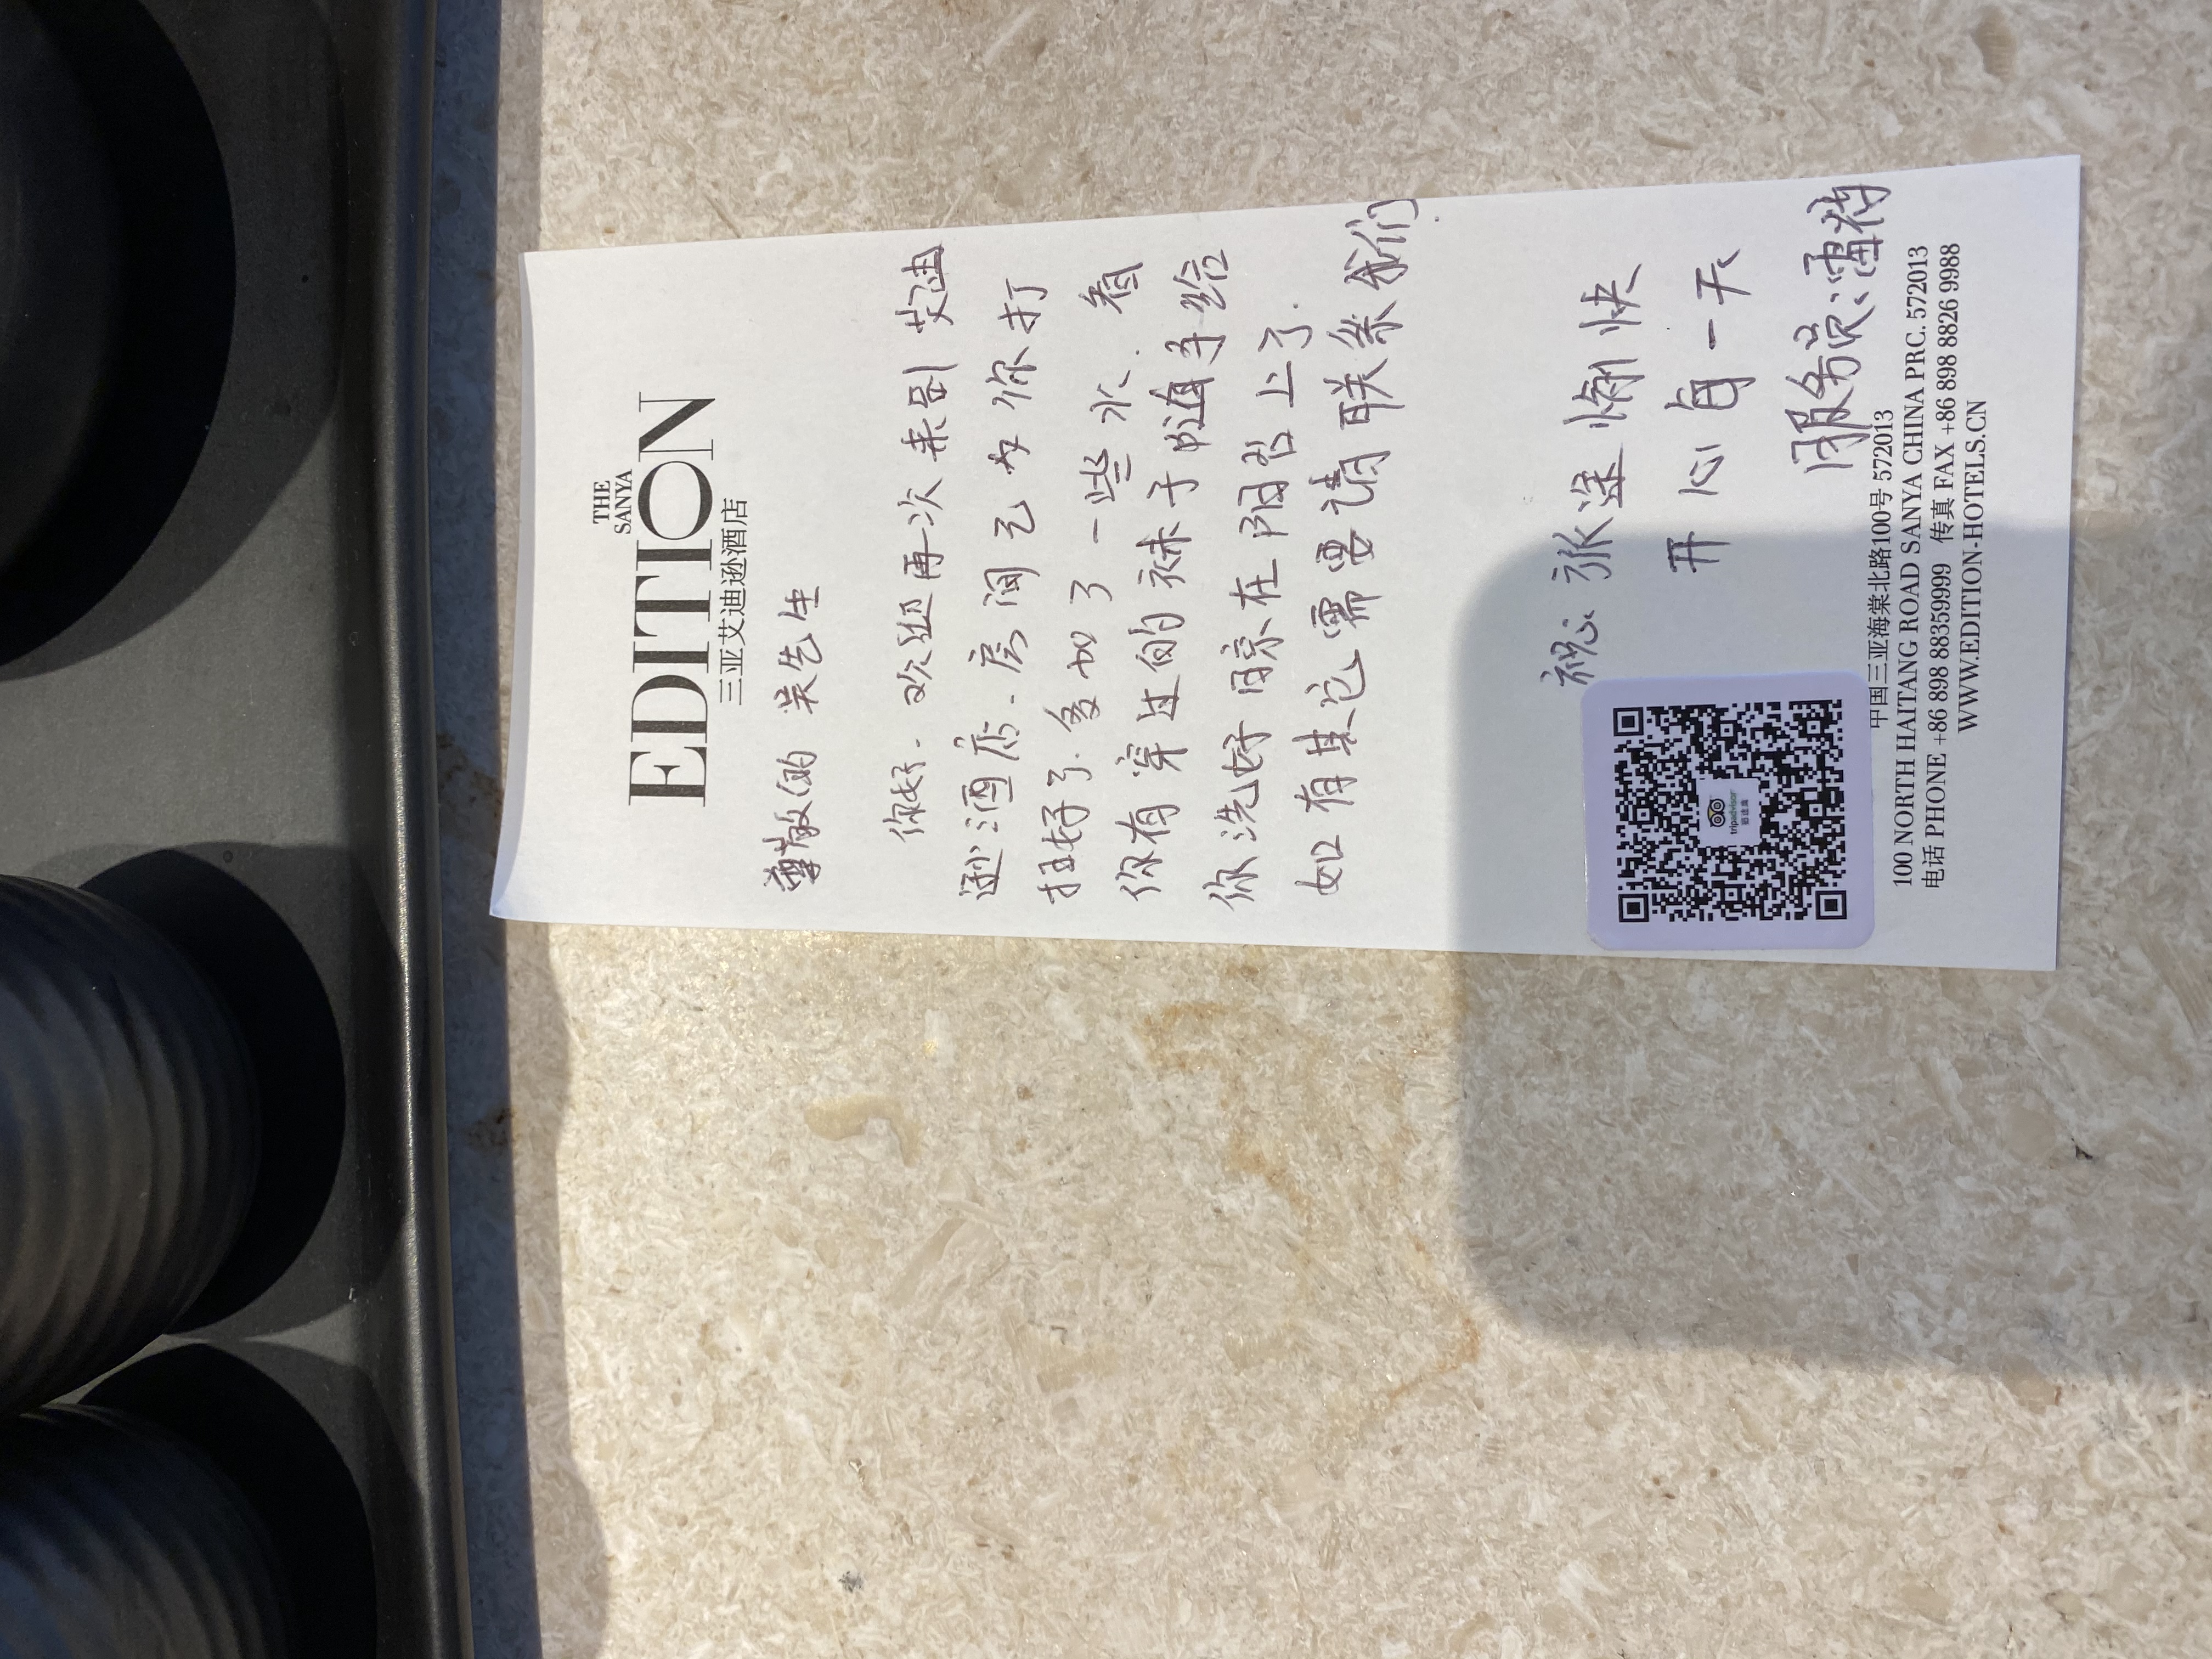 THE
SANYA
EDITION
三亚艾迪逊酒店
尊敬的 吴先生
你好. 欢迎再次来到 艾迪
逊酒店. 房间已为你打
扫好了. 多加了一些水. 看
你有穿过的袜子 随手给
你洗好 晾在阳台上了.
如有其它需要请联系我们
祝: 旅途愉快
开心每一天
服务员:
tripadvisor
猫途鹰
中国三亚海棠北路100号 572013
100 NORTH HAITANG ROAD SANYA CHINA PRC. 572013
电话 PHONE +86 898 88359999 传真 FAX +86 898 8826 9988
WWW.EDITION-HOTELS.CN